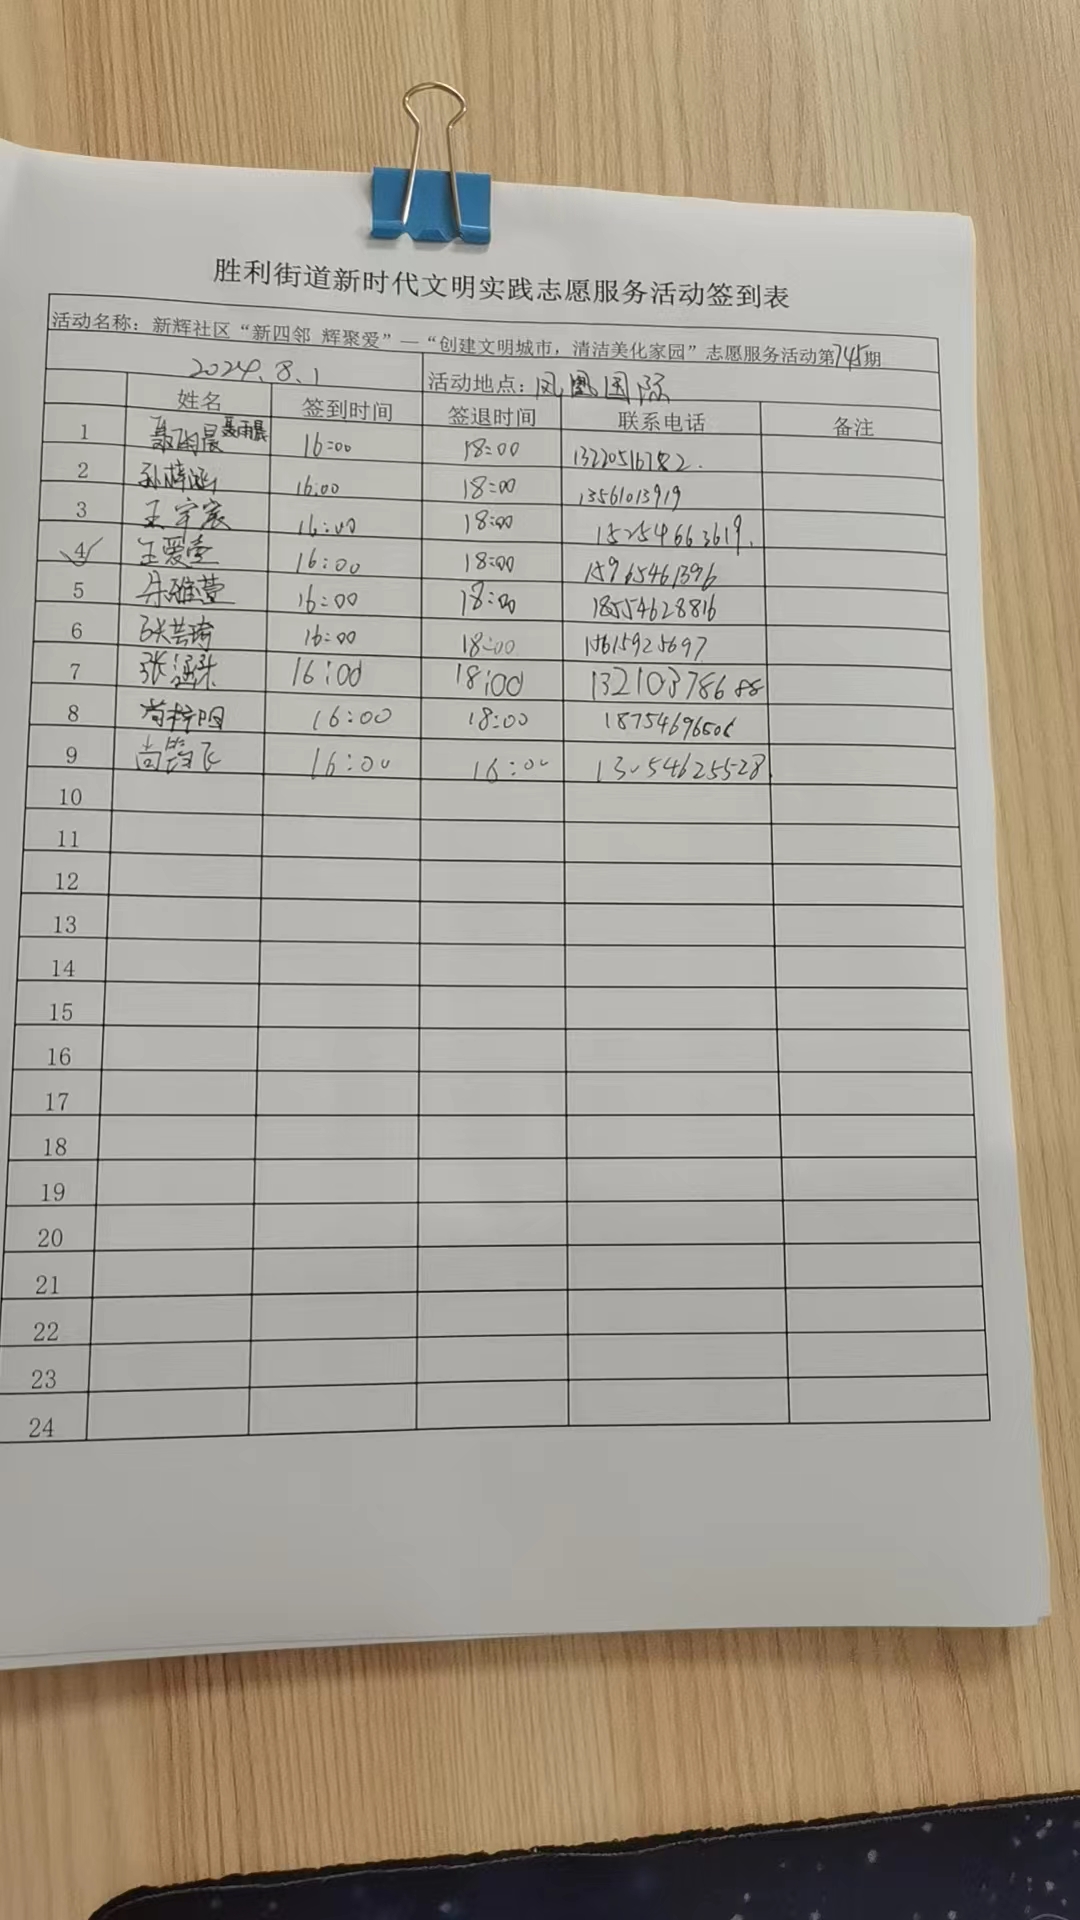 胜利街道新时代文明实践志愿服务活动签到表
活动名称：新辉社区“新四邻 辉聚爱”—“创建文明城市，清洁美化家园”志愿服务活动第745期
2024.8.1 活动地点：凤凰国际
姓名 签到时间 签退时间 联系电话 备注
1 聂雨晨 聂雨晨 16:00 18:00 13220516782.
2 孙梓涵 16:00 18:00 13561013919
3 王宇宸 16:00 18:00 15254663619.
4 王爱 16:00 18:00 15965461396
5 朱雅萱 16:00 18:00 18554628816
6 张芸琦 16:00 18:00 15615925697
7 张涵 16:00 18:00 13210378688
8 16:00 18:00 18754696506
9 尚 飞 16:00 16:00 13054625528
10
11
12
13
14
15
16
17
18
19
20
21
22
23
24